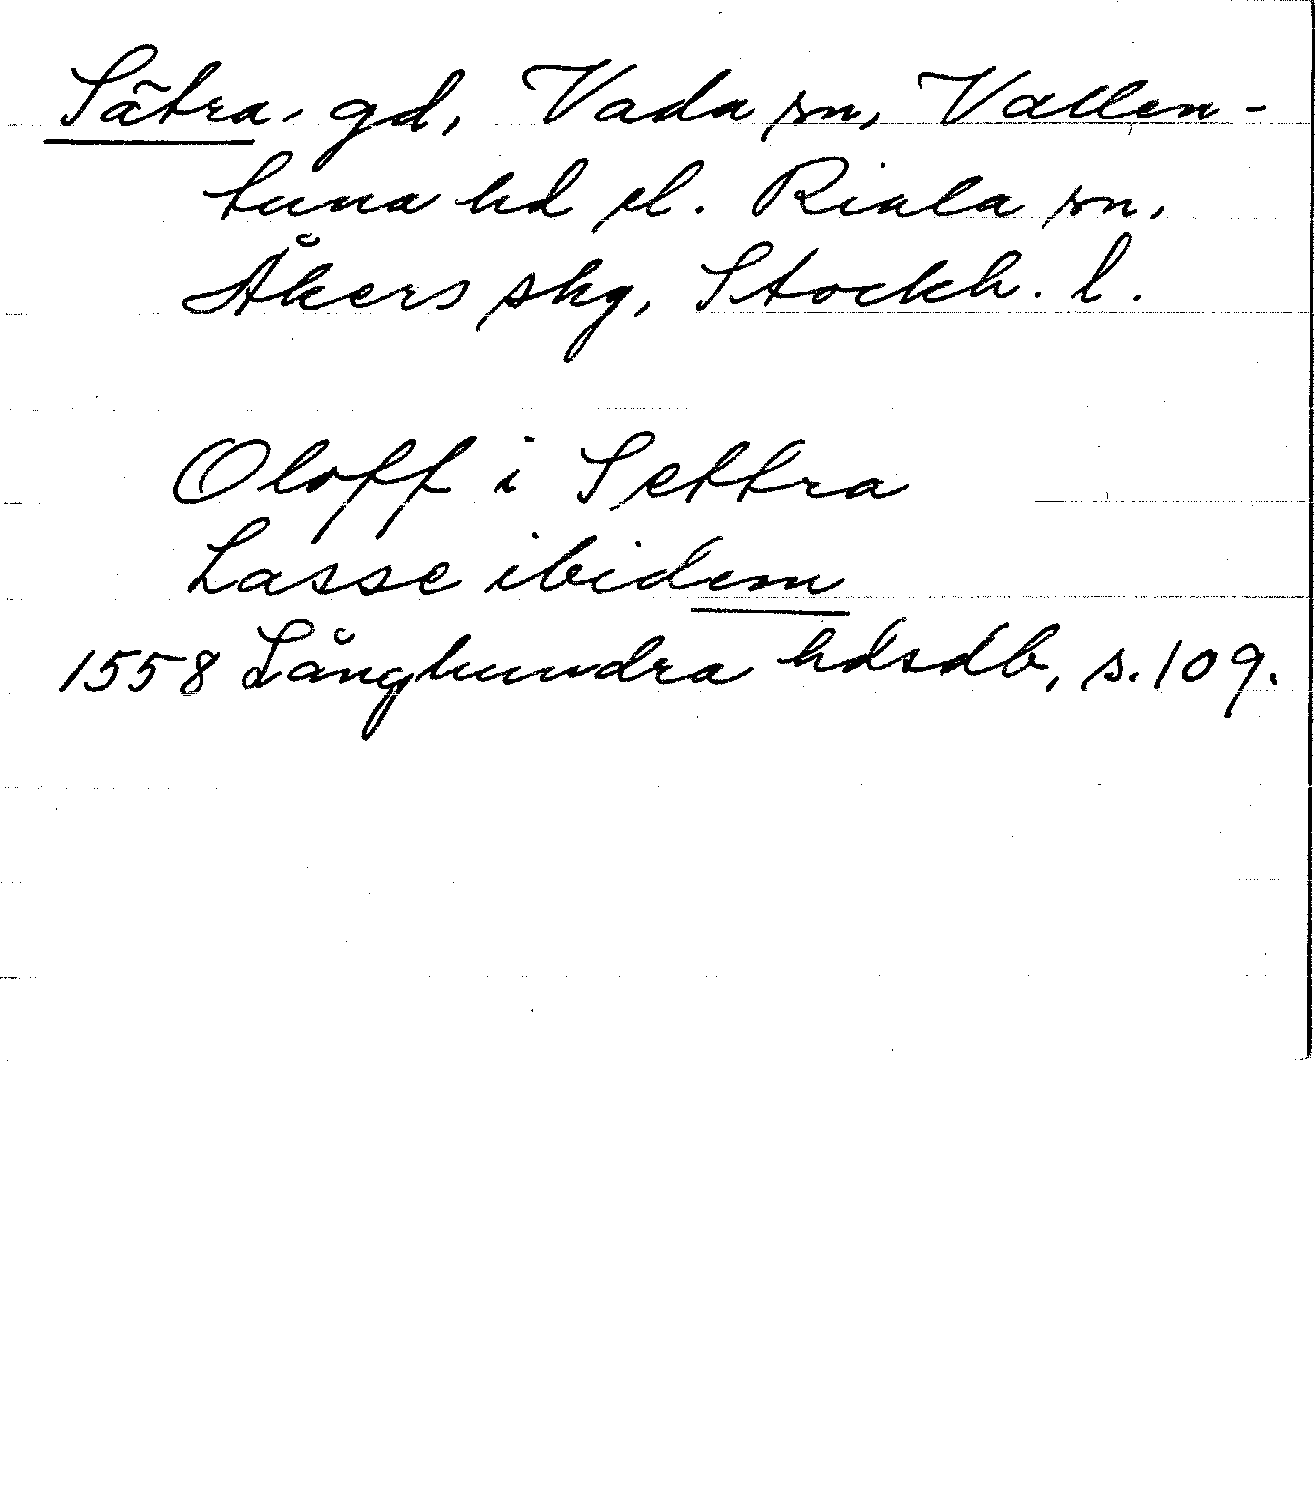 Sätra, gd, Vada sn, Vallen-
tuna hd el. Riala sn,
Åkers skg, Stockh. l.
Oloff i Settra
Lasse ibidem
1558 Långhundra hdsdb, s. 109.